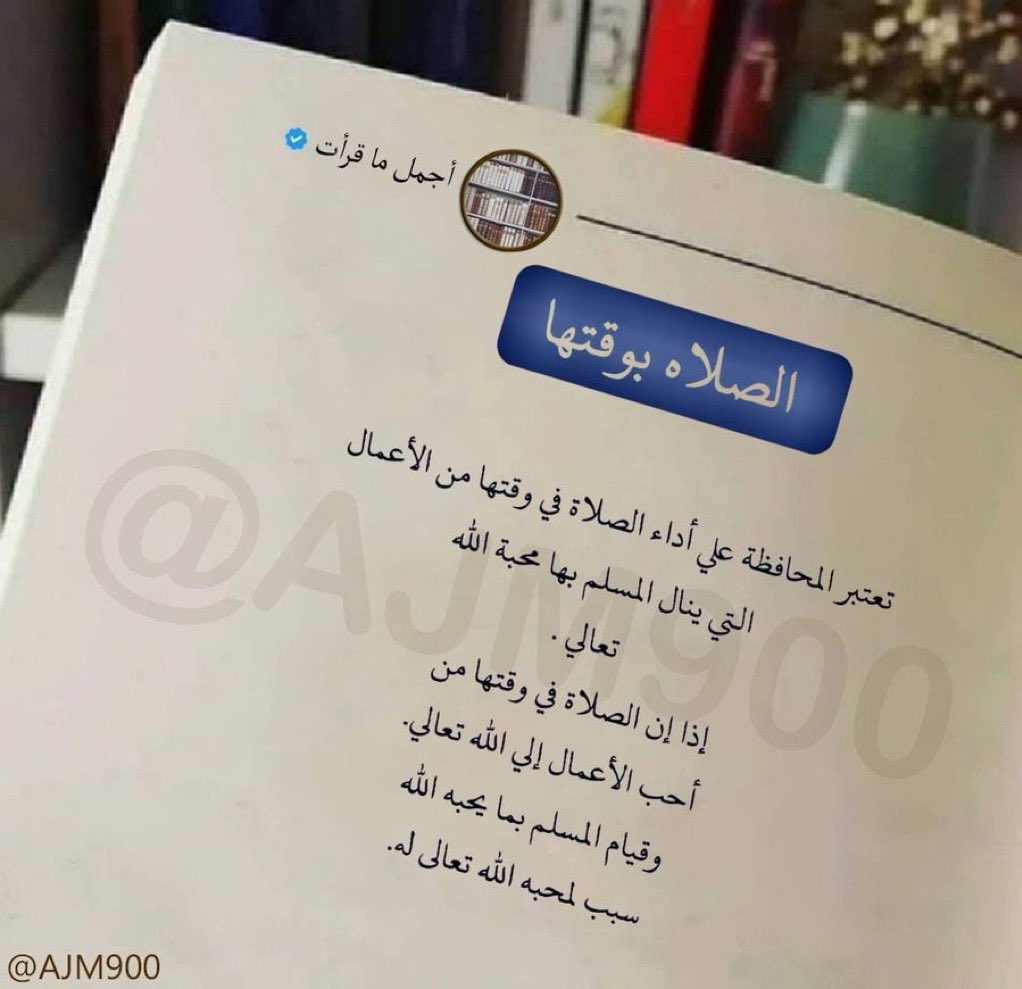 أجمل ما قرأت
الصلاه بوقتها
تعتبر المحافظة علي أداء الصلاة في وقتها من الأعمال
التي ينال المسلم بها محبة الله
تعالي .
إذا إن الصلاة في وقتها من
أحب الأعمال إلي الله تعالي.
وقيام المسلم بما يحبه الله
سبب لمحبه الله تعالى له.
@AJM900
@AJM900